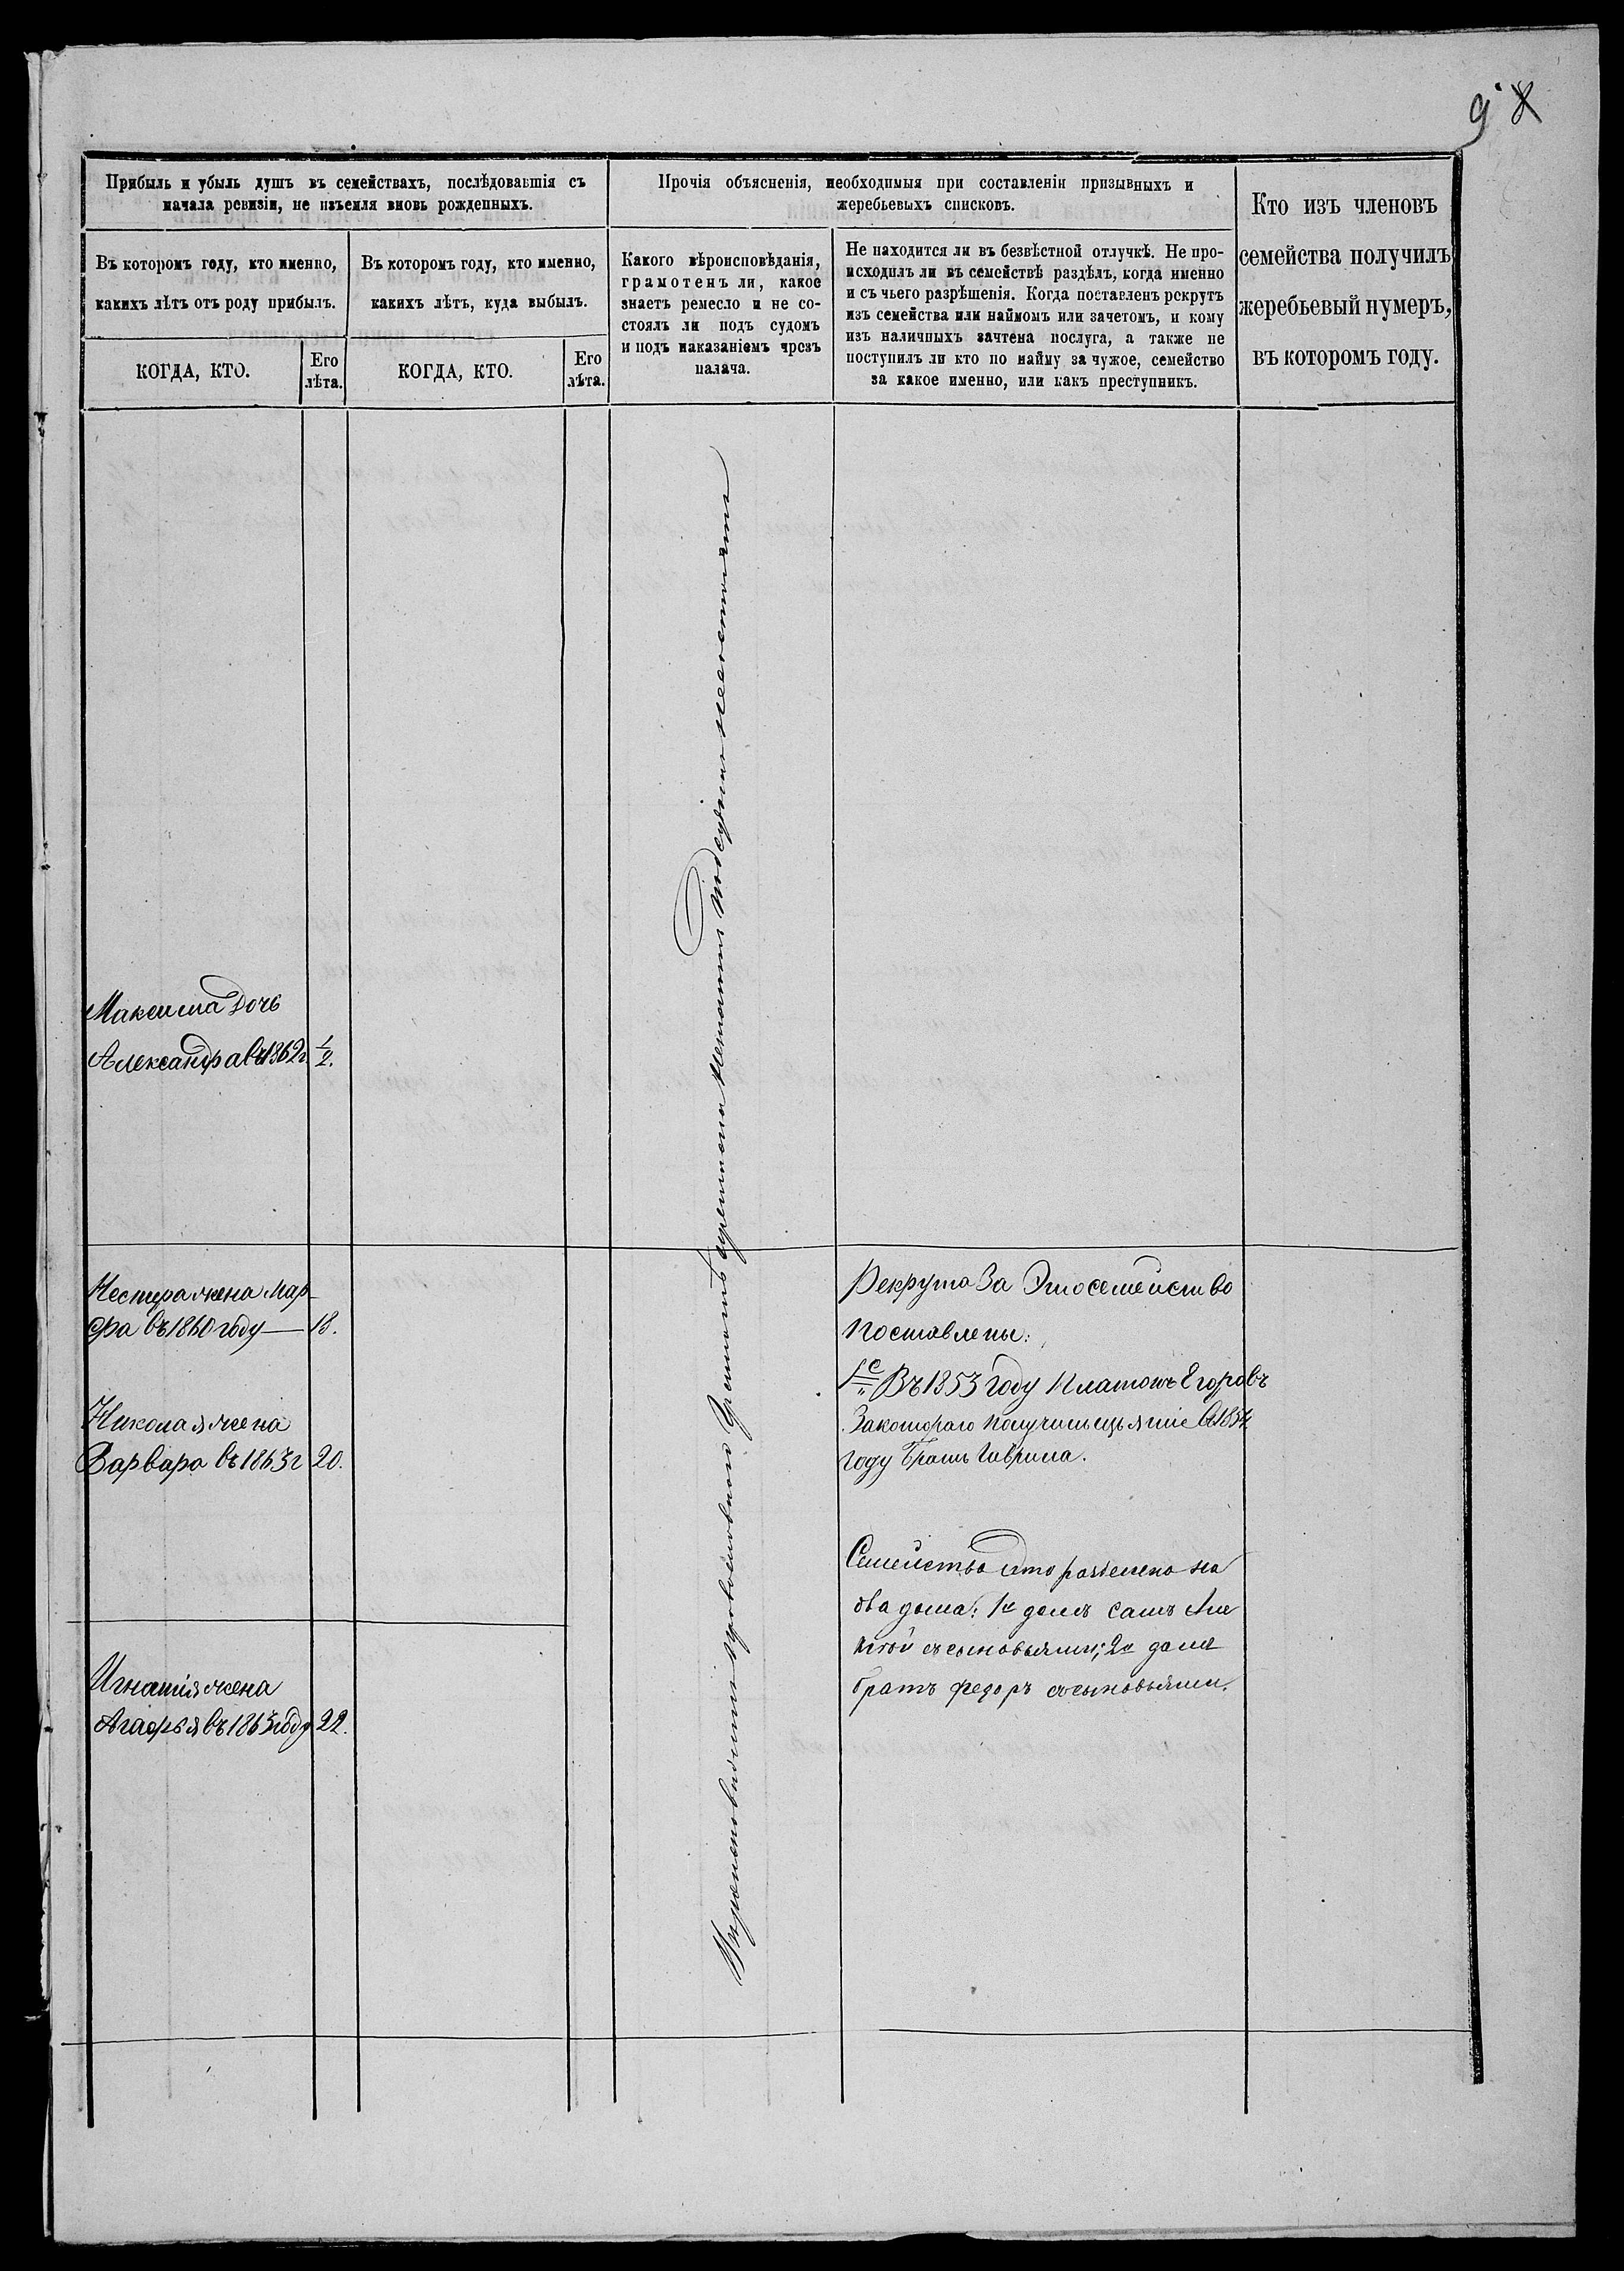 9 8
Прибыль и убыль душъ въ семействахъ, послѣдовавшія съ
начала ревизіи, не изъемля вновь рожденныхъ.
Прочія объясненія, необходимыя при составленіи призывныхъ и
жеребьевыхъ списковъ.
Кто изъ членовъ
семейства получилъ
жеребьевый нумеръ,
въ которомъ году.
Въ которомъ году, кто именно,
какихъ лѣтъ отъ роду прибылъ.
Въ которомъ году, кто именно,
какихъ лѣтъ, куда выбылъ.
Какого вѣроисповѣданія,
грамотенъ ли, какое
знаетъ ремесло и не со-
стоялъ ли подъ судомъ
и подъ наказаніемъ чрезъ
палача.
Не находится ли въ безвѣстной отлучкѣ. Не про-
исходилъ ли въ семействѣ раздѣлъ, когда именно
и съ чьего разрѣшенія. Когда поставленъ рекрутъ
изъ семейства или наймомъ или зачетомъ, и кому
изъ наличныхъ зачтена послуга, а также не
поступилъ ли кто по найму за чужое, семейство
за какое именно, или какъ преступникъ.
КОГДА, КТО.
Его
лѣта.
КОГДА, КТО.
Его
лѣта.
Максима дочь
Александра въ 1862 г 1/2.
Нестера жена Мар-
фа въ 1860 году — 18.
Николая жена
Варвара въ 1863 г 20.
Игнатія жена
Агафья въ 1863 году 22.
Вероисповеданія православнаго Грамотъ
Подсудомъ несостоятъ
Рекрута За Это семейство
поставлены:
1е Въ 1853 году Платонъ Егоровъ
За котораго получилъ
году братъ Гаврила.
Семейство это разделено на
два дома: 1й домъ самъ
съ сыновьями; 2й домъ
братъ федоръ съ сыновьями.